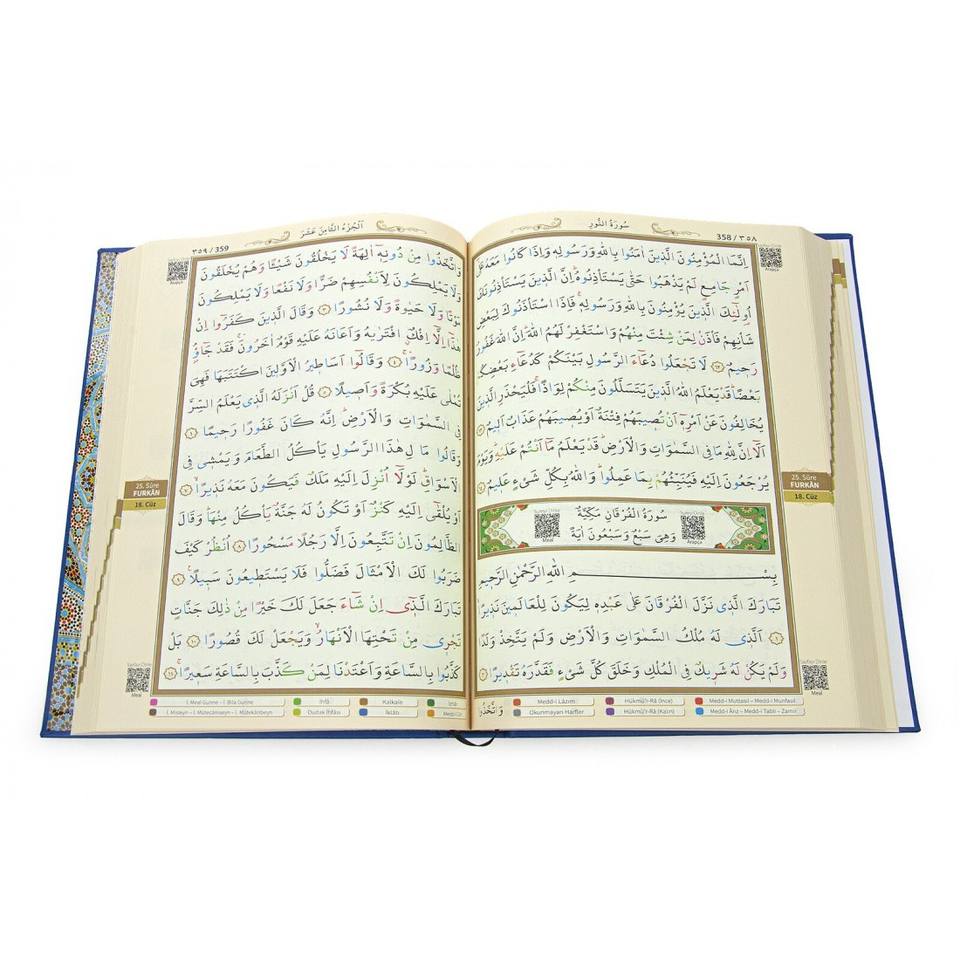 358 / ٣٥٨
سُورَةُ النُّورِ
اِنَّمَا الْمُؤْمِنُونَ الَّذ۪ينَ اٰمَنُوا بِاللّٰهِ وَرَسُولِه۪ وَاِذَا كَانُوا مَعَهُ عَلٰٓى
اَمْرٍ جَامِعٍ لَمْ يَذْهَبُوا حَتّٰى يَسْتَأْذِنُوهُۜ اِنَّ الَّذ۪ينَ يَسْتَأْذِنُونَكَ
اُو۬لٰٓئِكَ الَّذ۪ينَ يُؤْمِنُونَ بِاللّٰهِ وَرَسُولِه۪ۚ فَاِذَا اسْتَأْذَنُوكَ لِبَعْضِ
شَأْنِهِمْ فَأْذَنْ لِمَنْ شِئْتَ مِنْهُمْ وَاسْتَغْفِرْ لَهُمُ اللّٰهَۜ اِنَّ اللّٰهَ غَفُورٌ
رَح۪يمٌ ﴿٦٢﴾ لَا تَجْعَلُوا دُعَٓاءَ الرَّسُولِ بَيْنَكُمْ كَدُعَٓاءِ بَعْضِكُمْ
بَعْضًاۜ قَدْ يَعْلَمُ اللّٰهُ الَّذ۪ينَ يَتَسَلَّلُونَ مِنْكُمْ لِوَاذًاۚ فَلْيَحْذَرِ الَّذ۪ينَ
يُخَالِفُونَ عَنْ اَمْرِه۪ٓ اَنْ تُص۪يبَهُمْ فِتْنَةٌ اَوْ يُص۪يبَهُمْ عَذَابٌ اَل۪يمٌ ﴿٦٣﴾
اَلَٓا اِنَّ لِلّٰهِ مَا فِي السَّمٰوَاتِ وَالْاَرْضِۜ قَدْ يَعْلَمُ مَٓا اَنْتُمْ عَلَيْهِۜ وَيَوْمَ
يُرْجَعُونَ اِلَيْهِ فَيُنَبِّئُهُمْ بِمَا عَمِلُواۜ وَاللّٰهُ بِكُلِّ شَيْءٍ عَل۪يمٌ ﴿٦٤﴾
سُورَةُ الْفُرْقَانِ مَكِّيَّةٌ
وَهِيَ سَبْعٌ وَسَبْعُونَ اٰيَةً
Meal
Arapça
بِسْمِ اللّٰهِ الرَّحْمٰنِ الرَّح۪يمِ
تَبَارَكَ الَّذ۪ي نَزَّلَ الْفُرْقَانَ عَلٰى عَبْدِه۪ لِيَكُونَ لِلْعَالَم۪ينَ نَذ۪يرًاۙ
﴿١﴾ اَلَّذ۪ي لَهُ مُلْكُ السَّمٰوَاتِ وَالْاَرْضِ وَلَمْ يَتَّخِذْ وَلَدًا
وَلَمْ يَكُنْ لَهُ شَر۪يكٌ فِي الْمُلْكِ وَخَلَقَ كُلَّ شَيْءٍ فَقَدَّرَهُ تَقْد۪يرًا ﴿٢﴾
وَاتَّخَذُوا
Medd-i Lâzım
Hükmü'r-Râ (İnce)
Medd-i Muttasıl – Medd-i Munfasıl
Okunmayan Harfler
Hükmü'r-Râ (Kalın)
Medd-i Ârız – Medd-i Tabîi – Zamir
Arapça
25. Sûre
FURKÂN
18. Cüz
Meal
٣٥٩ / 359
اَلْجُزْءُ الثَّامِنَ عَشَرَ
وَاتَّخَذُوا مِنْ دُونِه۪ٓ اٰلِهَةً لَا يَخْلُقُونَ شَيْـًٔا وَهُمْ يُخْلَقُونَ
وَلَا يَمْلِكُونَ لِاَنْفُسِهِمْ ضَرًّا وَلَا نَفْعًا وَلَا يَمْلِكُونَ
مَوْتًا وَلَا حَيٰوةً وَلَا نُشُورًا ﴿٣﴾ وَقَالَ الَّذ۪ينَ كَفَرُٓوا اِنْ
هٰذَٓا اِلَّٓا اِفْكٌۨ افْتَرٰيهُ وَاَعَانَهُ عَلَيْهِ قَوْمٌ اٰخَرُونَۚ فَقَدْ جَٓاؤُ۫
ظُلْمًا وَزُورًاۚ ﴿٤﴾ وَقَالُٓوا اَسَاط۪يرُ الْاَوَّل۪ينَ اكْتَتَبَهَا فَهِيَ
تُمْلٰى عَلَيْهِ بُكْرَةً وَاَص۪يلًا ﴿٥﴾ قُلْ اَنْزَلَهُ الَّذ۪ي يَعْلَمُ السِّرَّ
فِي السَّمٰوَاتِ وَالْاَرْضِۜ اِنَّهُ كَانَ غَفُورًا رَح۪يمًا ﴿٦﴾
وَقَالُوا مَا لِ هٰذَا الرَّسُولِ يَأْكُلُ الطَّعَامَ وَيَمْش۪ي فِي
الْاَسْوَاقِۜ لَوْلَٓا اُنْزِلَ اِلَيْهِ مَلَكٌ فَيَكُونَ مَعَهُ نَذ۪يرًاۙ ﴿٧﴾
اَوْ يُلْقٰٓى اِلَيْهِ كَنْزٌ اَوْ تَكُونُ لَهُ جَنَّةٌ يَأْكُلُ مِنْهَاۜ وَقَالَ
الظَّالِمُونَ اِنْ تَتَّبِعُونَ اِلَّا رَجُلًا مَسْحُورًا ﴿٨﴾ اُنْظُرْ كَيْفَ
ضَرَبُوا لَكَ الْاَمْثَالَ فَضَلُّوا فَلَا يَسْتَط۪يعُونَ سَب۪يلًا۟ ﴿٩﴾
تَبَارَكَ الَّذ۪ٓي اِنْ شَٓاءَ جَعَلَ لَكَ خَيْرًا مِنْ ذٰلِكَ جَنَّاتٍ
تَجْر۪ي مِنْ تَحْتِهَا الْاَنْهَارُۙ وَيَجْعَلْ لَكَ قُصُورًا ﴿١٠﴾ بَلْ
كَذَّبُوا بِالسَّاعَةِ وَاَعْتَدْنَا لِمَنْ كَذَّبَ بِالسَّاعَةِ سَع۪يرًاۚ ﴿١١﴾
İ. Meal Gunne – İ. Bila Gunne
İhfâ
Kalkale
İ. Misleyn – İ. Mütecâniseyn – İ. Mütekâribeyn
Dudak İhfâsı
İklâb
Arapça
25. Sûre
FURKÂN
18. Cüz
Meal